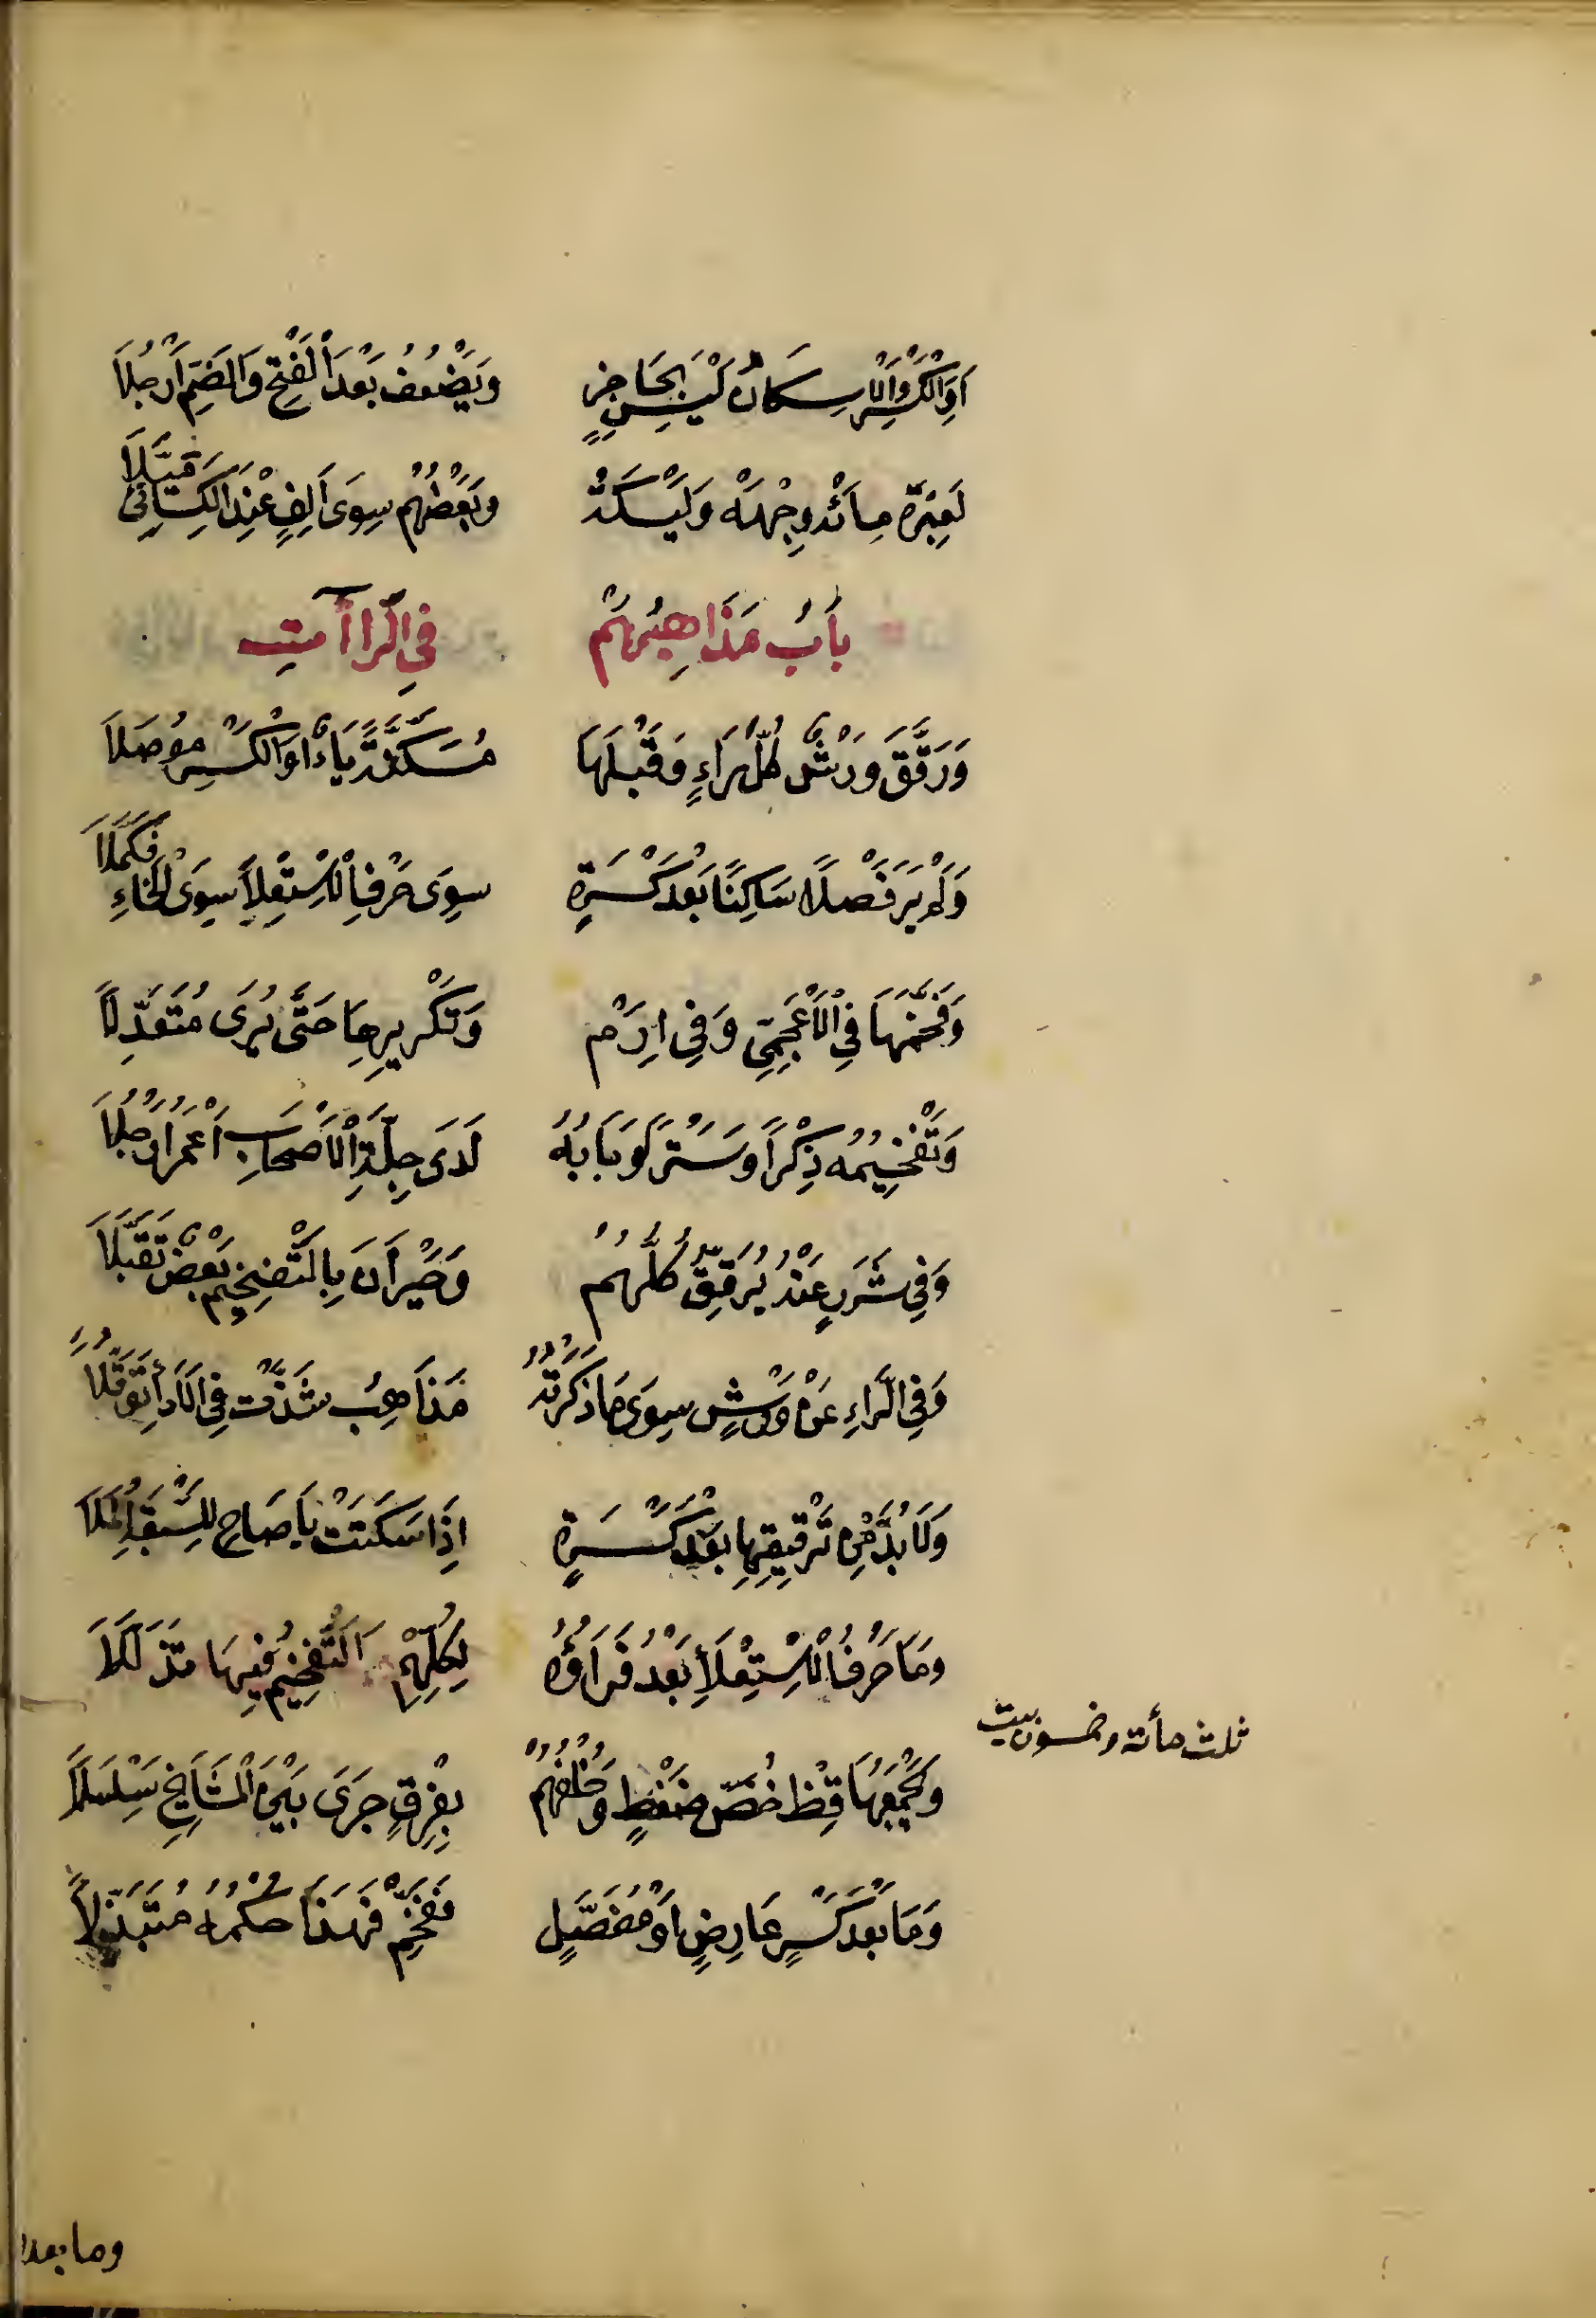 اَوِ الْكَسْرِ وَالْاِسْكَانُ لَيْسَ بِحَاجِزٍ وَيَضْعُفُ بَعْدَ الْفَتْحِ وَالضَّمِّ اَرْجُلَا
لَعِبْرَةْ مِائَةْ وِجْهَةْ وَلَيْكَةْ وَبَعْضُهُمْ سِوَى اَلِفٍ عِنْدَ الْكِسَائِىِّ مَيَّلَا
بَابُ مَذَاهِبِهِمْ فِى الرَّاآتِ
وَرَقَّقَ وَرْشٌ كُلَّ رَاءٍ وَقَبْلَهَا مُسَكَّنَةً يَاءٌ اَوِ الْكَسْرُ مُوصَلَا
وَلَمْ يَرَ فَصْلًا سَاكِنًا بَعْدَ كَسْرَةٍ سِوَى حَرْفِ الْاِسْتِعْلَا سِوَى الْخَاءِ فَكَمَّلَا
وَفَخَّمَهَا فِى الْاَعْجَمِىِّ وَفِى اِرَمْ وَتَكْرِيرِهَا حَتَّى يُرَى مُتَعَدِّلًا
وَتَفْخِيمُهُ ذِكْرًا وَسِتْرًا وَبَابَهُ لَدَى جِلَّةِ الْاَصْحَابِ اَعْمَرُ اَرْحُلَا
وَفِى شَرَرٍ عَنْهُ يُرَقِّقُ كُلُّهُمْ وَحَيْرَانَ بِالتَّفْخِيمِ بَعْضٌ تَقَبَّلَا
وَفِى الرَّاءِ عَنْ وَرْشٍ سِوَى مَا ذَكَرْتُهُ مَذَاهِبُ شَذَّتْ فِى الْاَدَاءِ تَوَقُّلَا
وَلَا بُدَّ مِنْ تَرْقِيقِهَا بَعْدَ كَسْرَةٍ اِذَا سَكَنَتْ يَا صَاحِ لِلسَّبْعَةِ الْمَلَا
وَمَا حَرْفُ الْاِسْتِعْلَاءِ بَعْدُ فَرَاؤُهُ لِكُلِّهِمْ التَّفْخِيمُ فِيهَا تَذَلَّلَا
ثلث مأتة وخمسون بيت
وَيَجْمَعُهَا قِظْ خُصَّ ضَغْطٍ وَخُلْفُهُمْ بِفِرْقٍ جَرَى بَيْنَ الْمَشَايِخِ سَلْسَلَا
وَمَا بَعْدَ كَسْرٍ عَارِضٍ اَوْ مُفَصَّلٍ فَفَخِّمْ فَهَذَا حُكْمُهُ مُتَبَذِّلًا
وما بعد